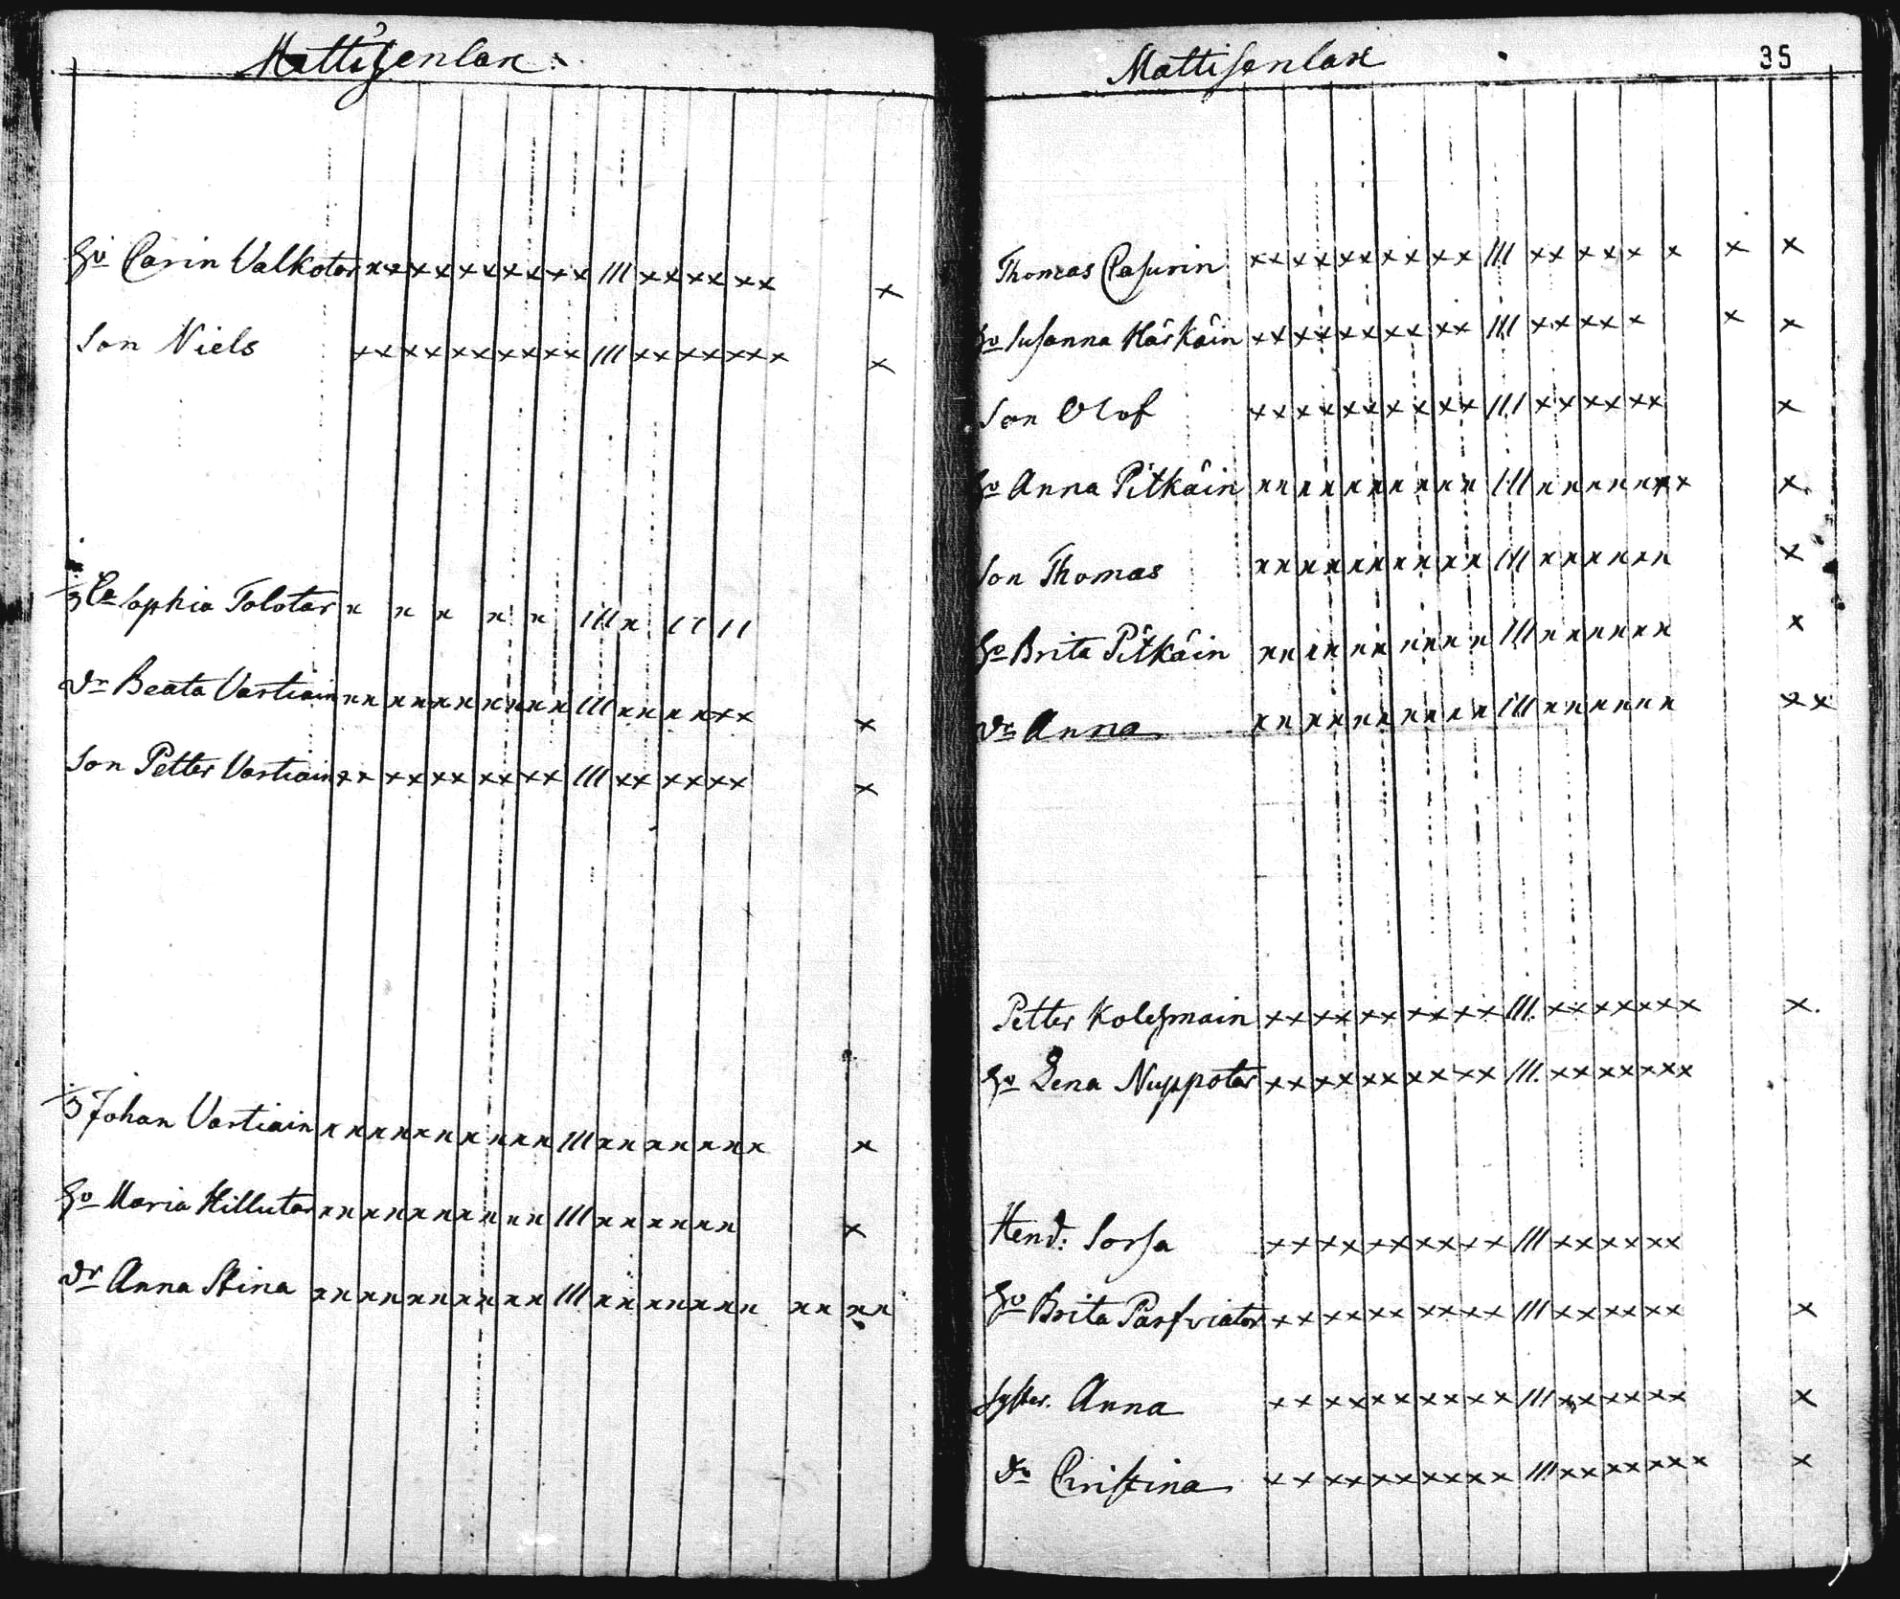 Mattisenlax
Hu Carin Valkotar xx xx xx xx xx III xx xx xx x
Son Niels xx xx xx xx xx III xx xx xxx x
Sophia Tolotar x x x x x III x II II
Dr Beata Vartiain xx xx xx xx xx III xx xx xx x
Son Petter Vartiain xx xx xx xx xx III xx xx xx x
Johan Vartiain xx xx xx xx xx III xx xx xx x x
Hu Maria Hillutar xx xx xx xx xx III xx xx xx x
Dr Anna Stina xx xx xx xx xx III xx xx xx xx xx
Mattisenlax 35
Thomas Casurin xx xx xx xx xx III xx xx x x x x
Hu Susanna Härkäin xx xx xx xx xx III xx xx x x x
Son Olof xx xx xx xx xx III xx xx xx x
Hu Anna Pitkäin xx xx xx xx xx III xx xx xx x x
Son Thomas xx xx xx xx xx III xx xx xx x
Hu Brita Pitkäin xx xx xx xx xx III xx xx xx x
Dr Anna xx xx xx xx xx III xx xx xx xx
Petter Kolehmain xx xx xx xx xx III xx xx xx x x
Hu Lena Nuppotar xx xx xx xx xx III xx xx xx x
Hend: Sorsa xx xx xx xx xx III xx xx xx
Hu Brita Parfviatar xx xx xx xx xx III xx xx xx x
Syster. Anna xx xx xx xx xx III xx xx xx x
Do Christina xx xx xx xx xx III xx xx xx x x